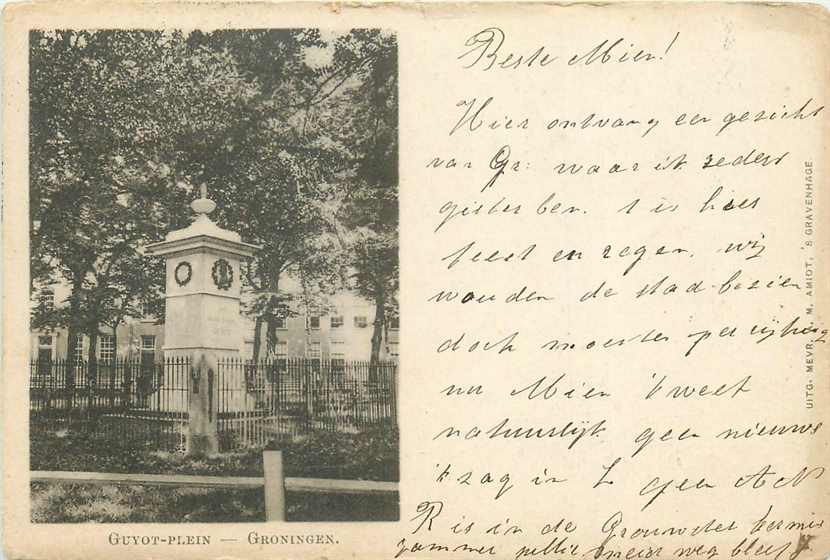 Beste Mien!
Hier ontvang een gezicht
van Gr: waar ik zeders
gister ben. 't is hier
feest en regen. wij
wouden de stad bezien
doch moesten per rijtuig
nu Mien 'k weet
natuurlijk geen nieuws
'k zag in L geen
R is in de kermis
jammer weg bleef
GUYOT-PLEIN — GRONINGEN.
UITG. MEVR. M. AMIOT, 'S GRAVENHAGE